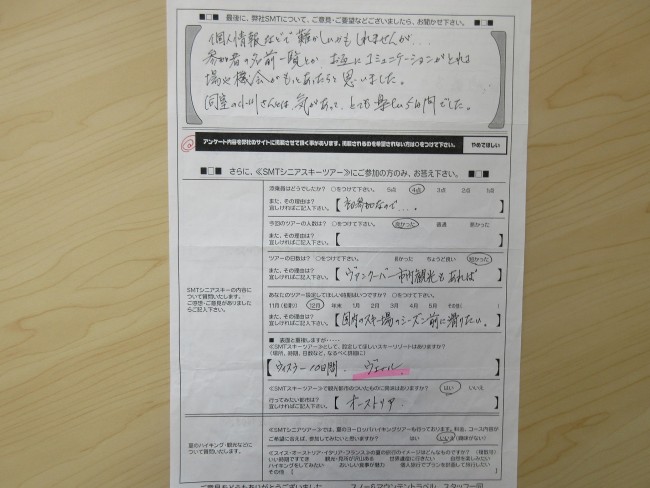 ■□■ 最後に、弊社SMTについて、ご意見・ご要望などございましたら、お聞かせ下さい。 ■□■
個人情報などで難しいかもしれませんが...
参加者の名前一覧とか、お互にコミュニケーションがとれる
場や機会がもっとあったらと思いました。
同室の小川さんとは、気があって、とても楽しい5日間でした。
アンケート内容を弊社のサイトに掲載させて頂く事があります。掲載されるのを希望されない方は○をつけて下さい。 やめてほしい
■□■ さらに、≪SMTシニアスキーツアー≫にご参加の方のみ、お答え下さい。 ■□■
添乗員はどうでしたか? ○をつけて下さい。 5点 4点 3点 2点 1点
また、その理由は?
宜しければご記入下さい。 【初参加なので....】
今回のツアーの人数は? ○をつけて下さい。 良かった 普通 悪かった
また、その理由は?
宜しければご記入下さい。 【 】
ツアーの日数は? ○をつけて下さい。 長かった ちょうど良い 短かった
また、その理由は?
宜しければご記入下さい。 【ヴァンクーバー市内観光もあれば】
SMTシニアスキーの内容に
ついて質問いたします。
ご感想・ご意見がありました
らご記入下さい。
あなたのツアー設定してほしい時期はいつですか? ○をつけて下さい。
11月(初滑り) 12月 年末 1月 2月 3月 4月 5月 その他( )
また、その理由は?
宜しければご記入下さい。 【国内のスキー場のシーズン前に滑りたい。】
■ 表面と重複しますが・・・・・
≪SMTスキーツアー≫として、設定してほしいスキーリゾートはありますか?
(場所、時期、日数など、なるべく詳細に)
【ウィスラー 10日間. ヴェール】
≪SMTスキーツアー≫で観光都市のついたものに興味はありますか? はい いいえ
行ってみたい都市は?
宜しければご記入下さい。 【オーストリア.】
夏のハイキング・観光などに
ついて質問いたします。
≪SMTシニアツアー≫では、夏のヨーロッパハイキングツアーも行っております。料金、コース内容が
ご希望に合えば、参加してみたいと思いますか? はい いいえ(興味がない)
≪スイス・オーストリア・イタリア・フランス≫の夏の旅行のイメージはどんなものですか? (複数可)
いい時期ですてき 観光・見所が沢山ある 世界遺産に行きたい 自然を楽しみたい
ハイキングをしてみたい おいしい食事が魅力 個人旅行でプランを計画して旅行したい
その他 【 】
ご意見をどうもありがとうございました スノー&マウンテントラベル スタッフ一同